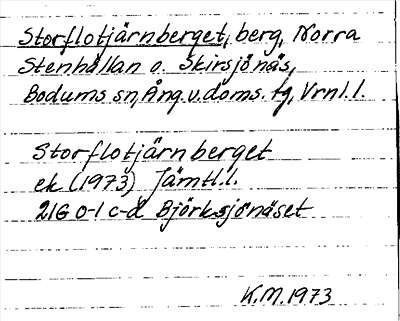 Storflotjärnberget, berg, Norra
Stenhållan o. Skirsjönäs,
Bodums sn, Ång.v.doms. tg, Vrnl.l.
Storflotjärnberget
ek (1973) Jämtl.l.
21G 0-1 c-d Björksjönäset
K.M.1973